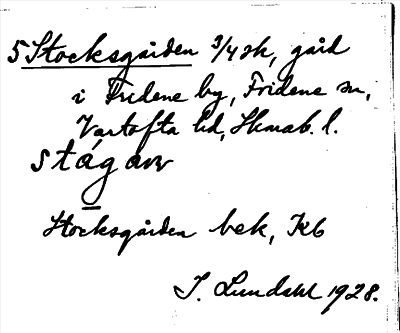 5 Stocksgården 3/4 sk, gård
i Fridene by, Fridene sn,
Vartofta hd, Skarab. l.
stágaɷ
Stocksgården bek, Kb
I. Lundahl 1928.